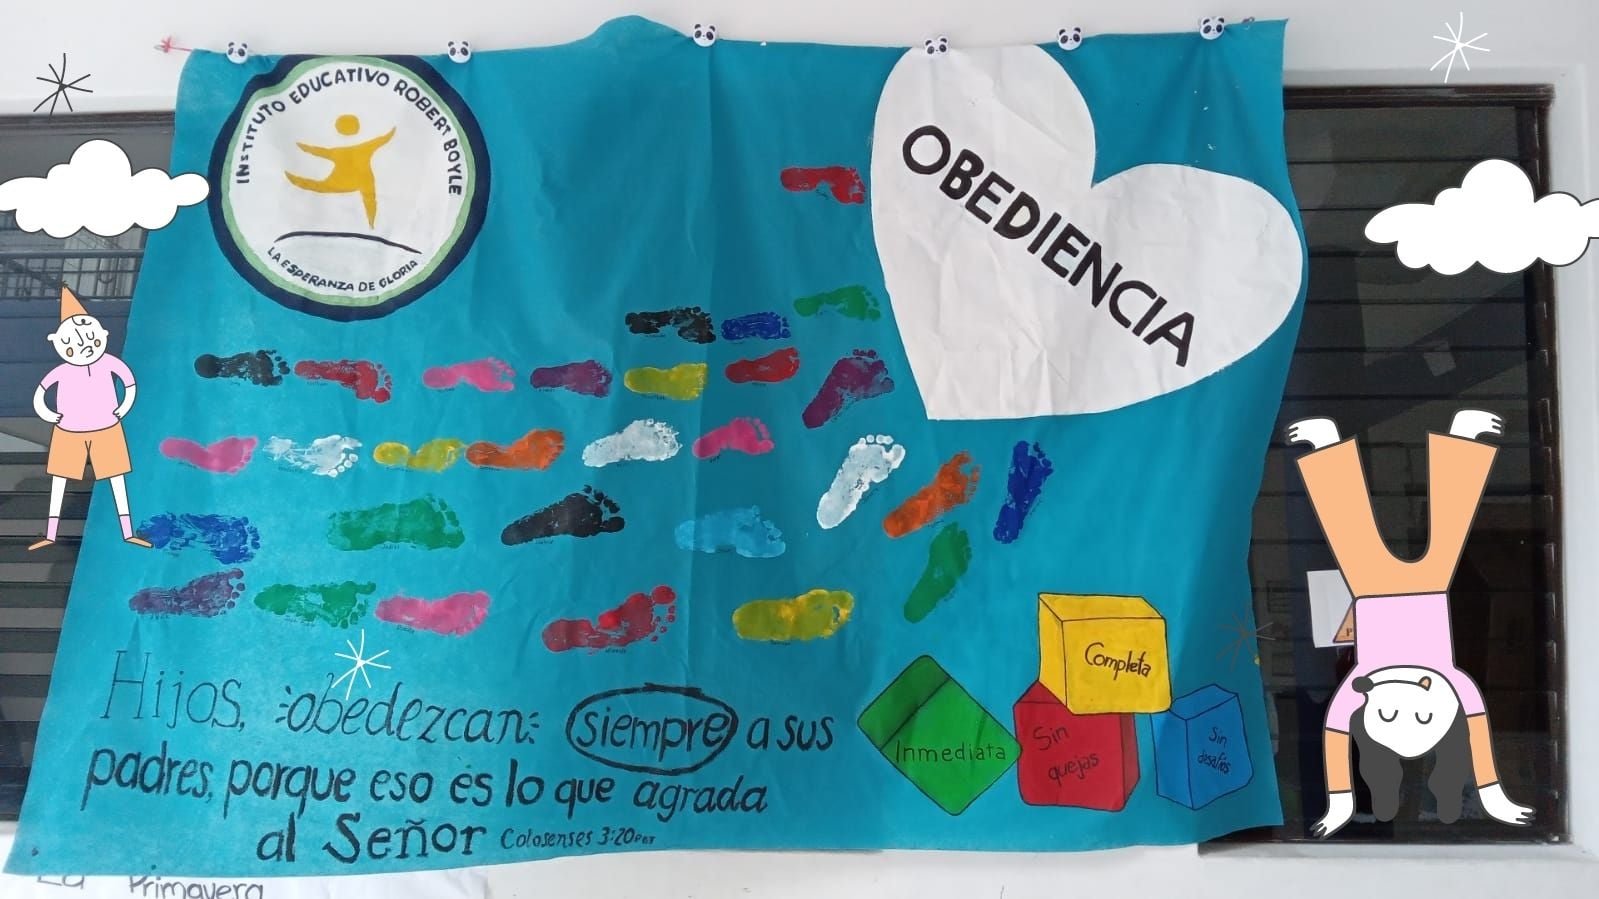 INSTITUTO EDUCATIVO ROBERT BOYLE
LA ESPERANZA DE GLORIA
OBEDIENCIA
Hijos, obedezcan siempre a sus
padres, porque eso es lo que agrada
al Señor Colosenses 3:20 PDT
Completa
Inmediata
Sin
quejas
Sin
desafíos
La Primavera